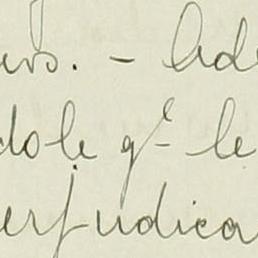 ers. - Ad
dole qᵉ- le
erjudica